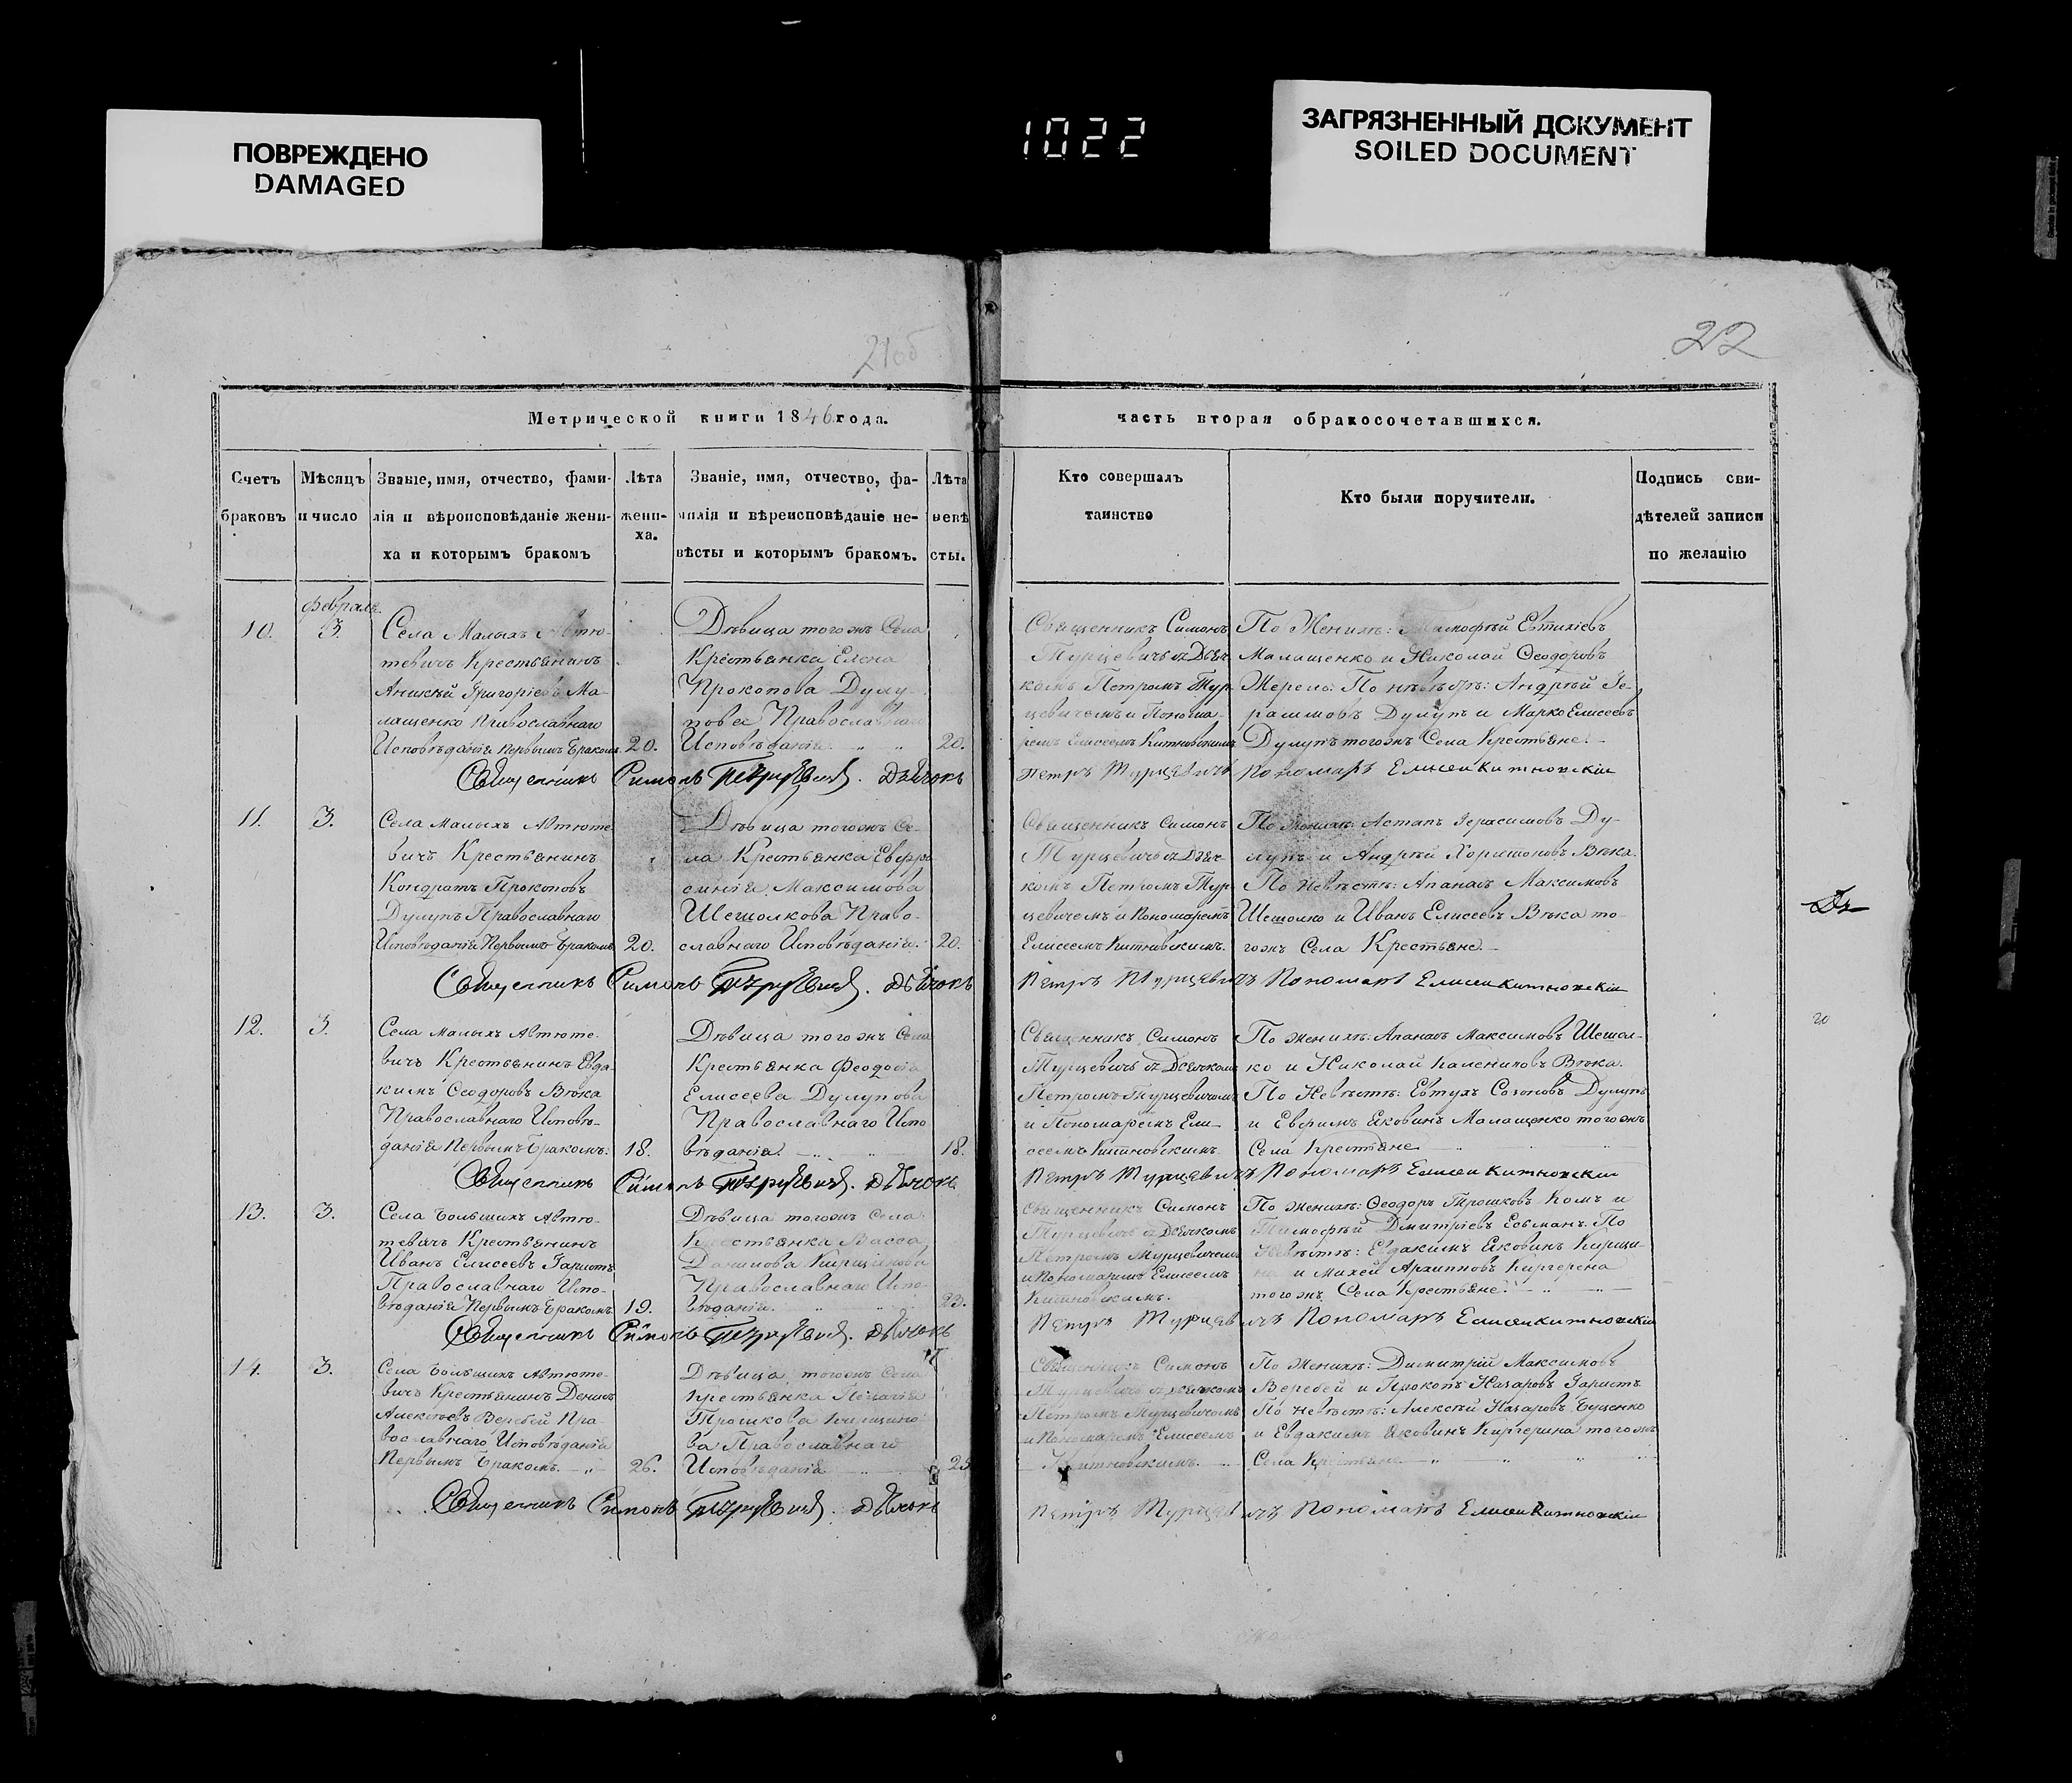 ПОВРЕЖДЕНО
DAMAGED
1022
ЗАГРЯЗНЕННЫЙ ДОКУМЕНТ
SOILED DOCUMENT
21об
22
Метрической книги 1846 года.
часть вторая обракосочетавшихся.
Счетъ браковъ
Мѣсяцъ и число
Званіе, имя, отчество, фами-
лія и вѣроисповѣданіе жени-
ха и которымъ бракомъ
Лѣта
жени-
ха.
Званіе, имя, отчество, фа-
милія и вѣреисповѣданіе не-
вѣсты и которымъ бракомъ.
Лѣта
невѣ
сты.
Кто совершалъ
таинство
Кто были поручители.
Подпись сви-
дѣтелей записи
по желанію
февраля
10.
3.
Села Малыхъ Автю-
тевичъ Крестьянинъ
Аникѣй Григоріевъ Ма-
лащенко Православнаго
Исповѣданія Первымъ Бракомъ
20.
Дѣвица тогожъ Села
Крестьянка Елена
Прокопова Дулу-
пова Православнаго
Исповѣданія
20.
Священникъ Симонъ
Турцевичъ съ Дьяч-
комъ Петромъ Тур-
цевичемъ и Понома-
ремъ Елисеемъ Китновскимъ
По Женихѣ: Тимофѣй Евтихіевъ
Малащенко и Николай Ѳеодоровъ
Жерело: По невѣстѣ: Андрѣй Ге-
расимовъ Дулупъ и Марко Елисеевъ
Дулупъ тогожъ Села Крестьяне.
Священникъ Симонъ Турцевичъ. Дьячокъ
Петръ Турцевичъ Пономаръ Елисей Китновскій
11.
3.
Села Малыхъ Автюте-
вичъ Крестьянинъ
Кондратъ Прокоповъ
Дулупъ Православнаго
Исповѣданія Первымъ Бракомъ
20.
Дѣвица тогожъ Се-
ла Крестьянка Евфро
синія Максимова
Шешолкова Право-
славнаго Исповѣданія.
20.
Священникъ Симонъ
Турцевичъ съ Дьяч-
комъ Петромъ Тур-
цевичемъ и Пономаремъ
Елисеемъ Китновскимъ.
По Женихѣ: Астапъ Герасимовъ Ду-
лупъ и Андрѣй Харитоновъ Вѣка.
По Невѣстѣ: Апанасъ Максимовъ
Шешолко и Иванъ Елисеевъ Вѣка то-
гожъ Села Крестьяне.
Священникъ Симонъ Турцевичъ. Дьячокъ
Петръ Турцевичъ Пономаръ Елисей Китновскій
12.
3.
Села Малыхъ Автюте-
вичъ Крестьянинъ Евда-
кимъ Ѳеодоровъ Вѣка
Православнаго Исповѣ-
данія Первымъ Бракомъ.
18.
Дѣвица тогожъ Села
Крестьянка Феодосія
Елисеева Дулупова
Православнаго Испо
вѣданія.
18.
Священникъ Симонъ
Турцевичъ съ Дьячкомъ
Петромъ Турцевичемъ
и Пономаремъ Ели-
сеемъ Китновскимъ.
По Женихѣ: Апанасъ Максимовъ Шешол-
ко и Николай Вѣка.
По Невѣстѣ: Евтухъ Созоновъ Дулупъ
и Ефимъ Яковинъ Малащенко тогожъ
Села Крестьяне
Священникъ Симонъ Турцевичъ. Дьячокъ
Петръ Турцевичъ Пономаръ Елисей Китновскій
20
13.
3.
Села Большихъ Автю-
тевичъ Крестьянинъ
Иванъ Елисеевъ Гаристъ
Православнаго Испо-
вѣданія Первымъ Бракомъ
19.
Дѣвица тогожъ Села
Крестьянка Васса
Данилова
Православнаго Испо-
вѣданія.
23.
Священникъ Симонъ
Турцевичъ съ Дьячкомъ
Петромъ Турцевичемъ
и Пономаремъ Елисеемъ
Китновскимъ.
По Женихѣ: Ѳеодоръ Трошковъ Комъ и
Тимофѣй Дмитріевъ По
Невѣстѣ: Евдакимъ Яковинъ
и Михей Архиповъ
тогожъ Села Крестьяне.
Священникъ Симонъ Турцевичъ. Дьячокъ
Петръ Турцевичъ Пономаръ Елисей Китновскій
14.
3.
Села Большихъ Автюте-
вичъ Крестьянинъ Денисъ
Алексѣевъ Веребей Пра-
вославнаго Исповѣданія
Первымъ Бракомъ.
26.
Дѣвица тогожъ Села
Крестьянка Пелагія
Трошкова
ва Православнаго
Исповѣданія
25
Священникъ Симонъ
Турцевичъ съ Дьячкомъ
Петромъ Турцевичемъ
и Пономаремъ Елисеемъ
Китновскимъ.
По Женихѣ: Димитрій Максимовъ
Веребей и Прокопъ Назаровъ Гаристъ
По Невѣстѣ: Алексѣй Назаровъ Буценко
и Евдакимъ Яковинъ тогожъ
Села Крестьяне
Священникъ Симонъ Турцевичъ. Дьячокъ
Петръ Турцевичъ Пономаръ Елисей Китновскій